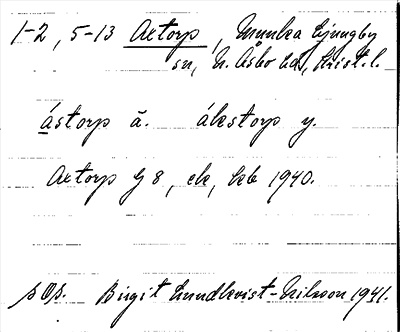 1-2, 5-13 Axtorp, Munka Ljungby
sn, N. Åsbo hd, Krist. l.
ástorp ä. álestorp y.
Axtorp G 8, ek, hkb 1940.
Birgit Lundkvist-Nilsson 1941.